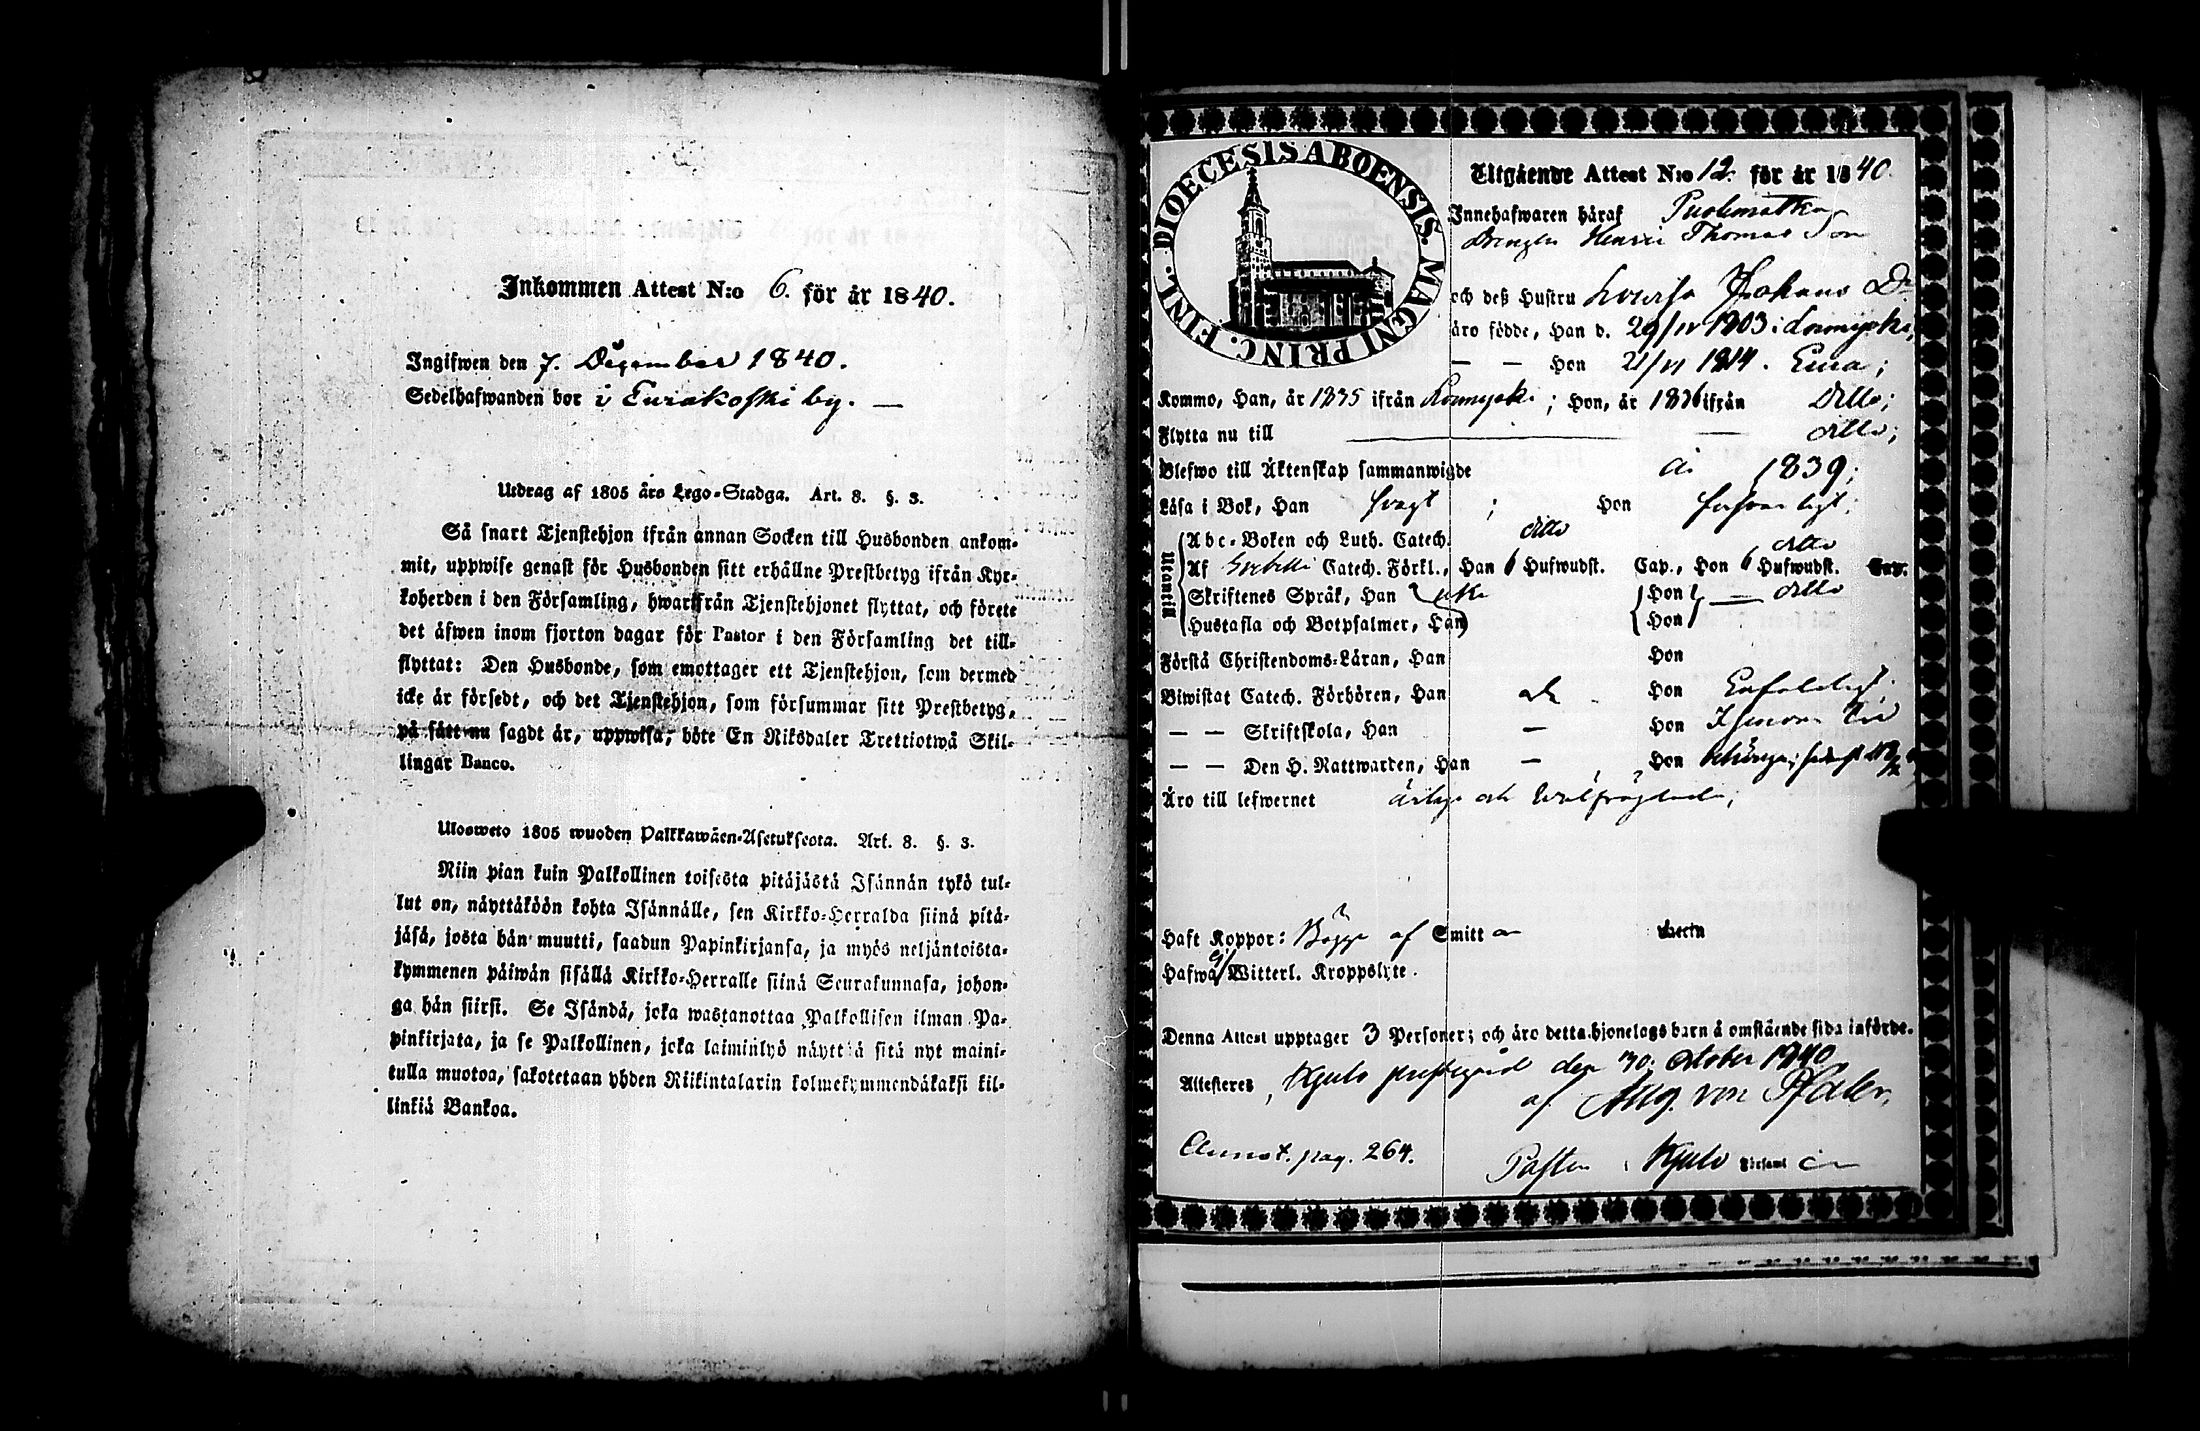 Inkommen Attest N:o 6. för år 1840.
Ingifwen den 7. December 1840.
Sedelhafwanden bor i Eurakoski by. —
Utdrag af 1805 års Lego-Stadga. Art. 8. §. 3.
Så snart Tjenstehjon ifrån annan Socken till Husbonden ankom-
mit, uppwise genast för Husbonden sitt erhållne Prestbetyg ifrån Kyr-
koherden i den Församling, hwarifrån Tjenstehjonet flyttat, och förete
det äfwen inom fjorton dagar för Pastor i den Församling det till-
flyttat: Den Husbonde, som emottager ett Tjenstehjon, som dermed
icke är försedt, och det Tjenstehjon, som försummar sitt Prestbetyg,
på sätt nu sagdt är, uppwisa, böte En Riksdaler Trettiotwå Skil-
lingar Banco.
Ulosweto 1805 wuoden Palkkawäen-Asetuksesta. Art. 8. §. 3.
Niin pian kuin Palkollinen toisesta pitäjästä Isännän tykö tul-
lut on, näyttäköön kohta Isännälle, sen Kirkko-Herralda siinä pitä-
jäsä, josta hän muutti, saadun Papinkirjansa, ja myös neljäntoista-
kymmenen päiwän sisällä Kirkko-Herralle siinä Seurakunnasa, johon-
ga hän siirsi. Se Isändä, joka wastanottaa Palkollisen ilman Pa-
pinkirjata, ja se Palkollinen, joka laiminlyö näyttää sitä nyt maini-
tulla muotoa, sakotetaan yhden Riikintalarin kolmekymmendäkaksi kil-
linkiä Bankoa.
DIOECESIS ABOENSIS. MAGNI PRINC. FINL.
Utgående Attest N:o 12. för år 1840.
Innehafwaren häraf
Drengen Henric Thomas Son
och deß Hustru Lovisa Johans Dr
äro födde, Han d. 29/IV 1803 i
— — Hon 21/VI 1814. Eura;
Kommo, Han, år 1835 ifrån ; Hon, år 1836 ifrån Ditto;
Flytta nu till — — ditto;
Blefwo till Äktenskap sammanwigde år 1839;
Läsa i Bok, Han svagt ; Hon försvarligt;
Utantill
Abc-Boken och Luth. Catech. ditto ditto
Af Catech. Förkl., Han 6 Hufwudst. Cap., Hon 6 Hufwudst. Cap.
Skriftenes Språk, Han Hon — ditto
Hustafla och Botpsalmer, Han Hon
Förstå Christendoms-Läran, Han Hon
Biwistat Catech. Förhören, Han Hon Enfaldigt;
— — Skriftskola, Han — Hon
— — Den H. Nattwarden, Han — Hon
Äro till lefwernet ärliga och wälfrägdade;
Haft Koppor: Bägge af Smittan
Hafwa ej Witterl. Kroppslyte.
Denna Attest upptager 3 Personer; och äro detta hjonelags barn å omstående sida införde.
Attesteres, Kjulo prestegård den 30 October 1840
af Aug. von Pfaler,
Annot. pag. 264.
Pastor i Kjulo Församl